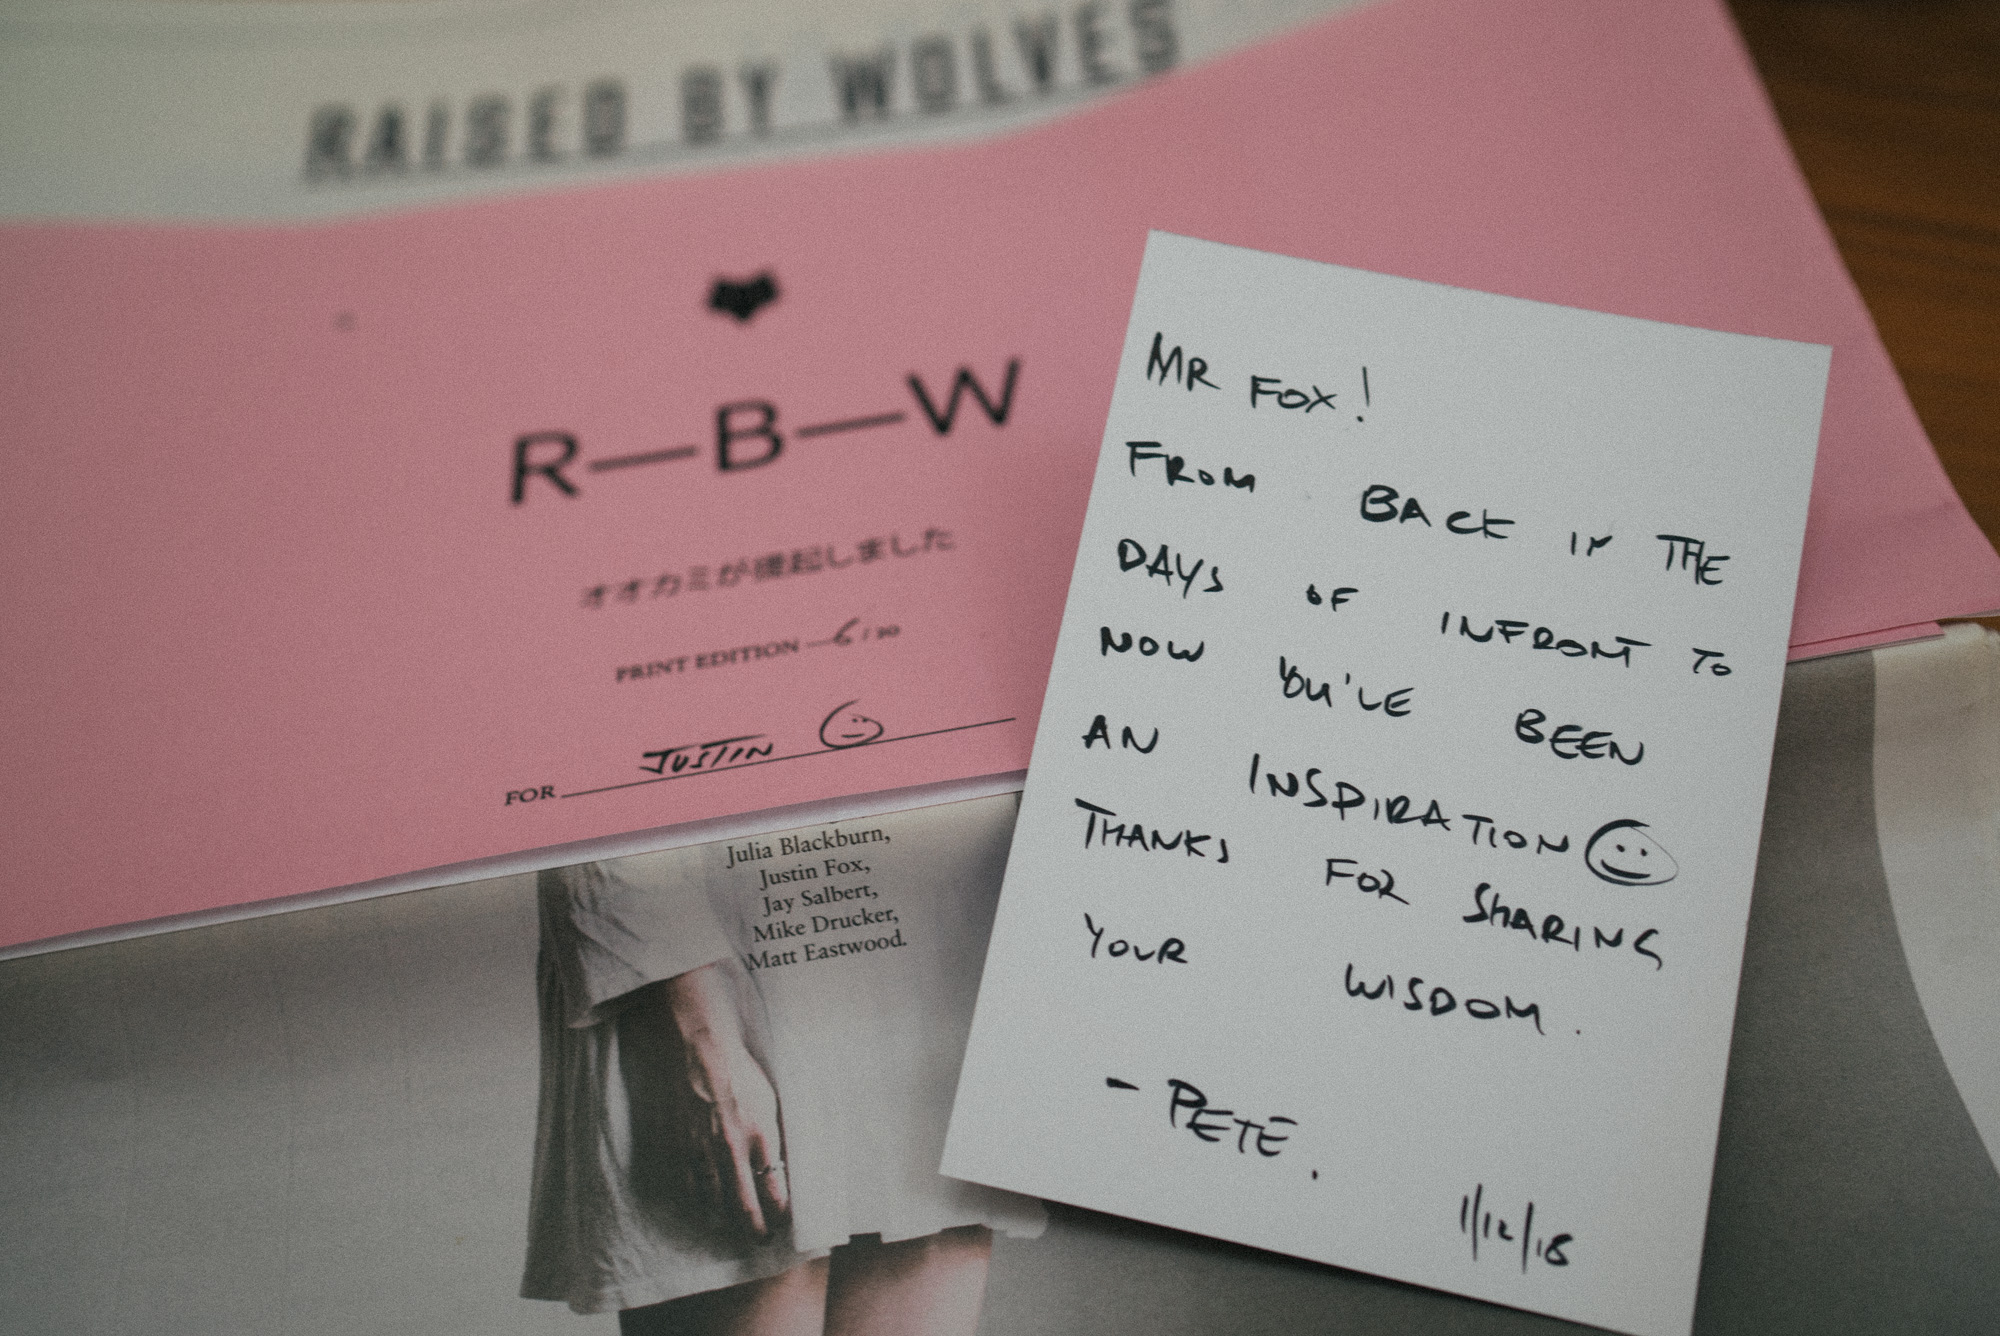 RAISED BY WOLVES
R—B—W
オオカミが提起しました
PRINT EDITION — 6 / 30
FOR JUSTIN
Julia Blackburn,
Justin Fox,
Jay Salbert,
Mike Drucker,
Matt Eastwood.
MR FOX!
FROM BACK IN THE
DAYS OF INFRONT TO
NOW YOU'VE BEEN
AN INSPIRATION
THANKS FOR SHARING
YOUR WISDOM.
- PETE.
1/12/18